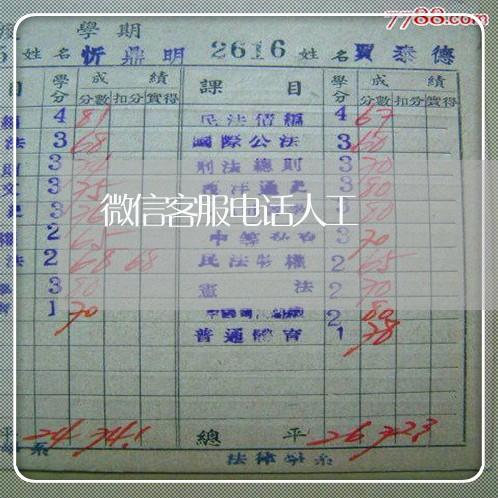 7788.com
學期
姓名 忻鼎明 2616 姓名 賈泰德
目 學分 成績 課目 學分 成績
分數 扣分 實得 分數 扣分 實得
4 81 民法債編 4 67
法 3 68 國際公法 3 60
3 刑法總則 3 70
文 3 75 西洋通史 3 80
3 3 80
微信客服电话人工
權 2 65 3 70
法 2 68 68 民法物權 2 65
3 80 憲法 2 70
1 70 2 80
普通體育 1 78
平 24 74.1 總平 26 72.3
系 法律學系